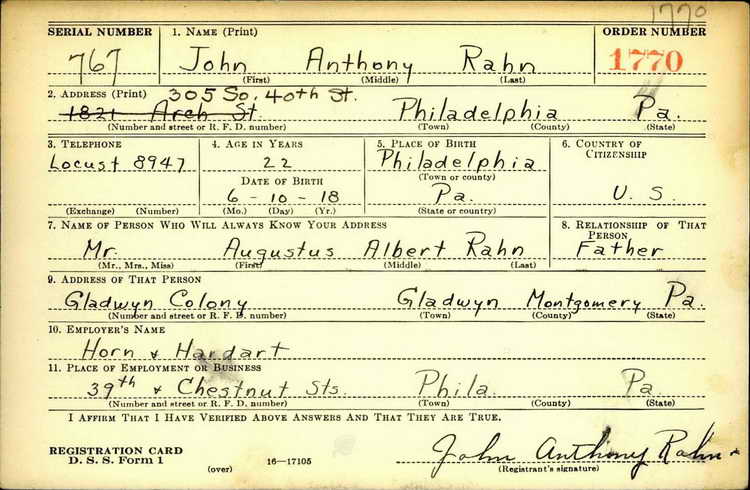 1770
SERIAL NUMBER 1. NAME (Print) ORDER NUMBER
767 John Anthony Rahn 1770
(First) (Middle) (Last)
2. ADDRESS (Print) 305 So. 40th St.
1821 Arch St. Philadelphia Pa.
(Number and street or R. F. D. number) (Town) (County) (State)
3. TELEPHONE 4. AGE IN YEARS 5. PLACE OF BIRTH 6. COUNTRY OF
CITIZENSHIP
Locust 8947 22 Philadelphia
(Town or county)
DATE OF BIRTH
6-10-18 Pa. U. S.
(Exchange) (Number) (Mo.) (Day) (Yr.) (State or country)
7. NAME OF PERSON WHO WILL ALWAYS KNOW YOUR ADDRESS 8. RELATIONSHIP OF THAT
PERSON
Mr. Augustus Albert Rahn Father
(Mr., Mrs., Miss) (First) (Middle) (Last)
9. ADDRESS OF THAT PERSON
Gladwyn Colony Gladwyn Montgomery Pa.
(Number and street or R. F. D. number) (Town) (County) (State)
10. EMPLOYER'S NAME
Horn & Hardart
11. PLACE OF EMPLOYMENT OR BUSINESS
39th & Chestnut Sts. Phila. Pa.
(Number and street or R. F. D. number) (Town) (County) (State)
I AFFIRM THAT I HAVE VERIFIED ABOVE ANSWERS AND THAT THEY ARE TRUE.
REGISTRATION CARD
D. S. S. Form 1 (over) 16—17105 John Anthony Rahn
(Registrant's signature)